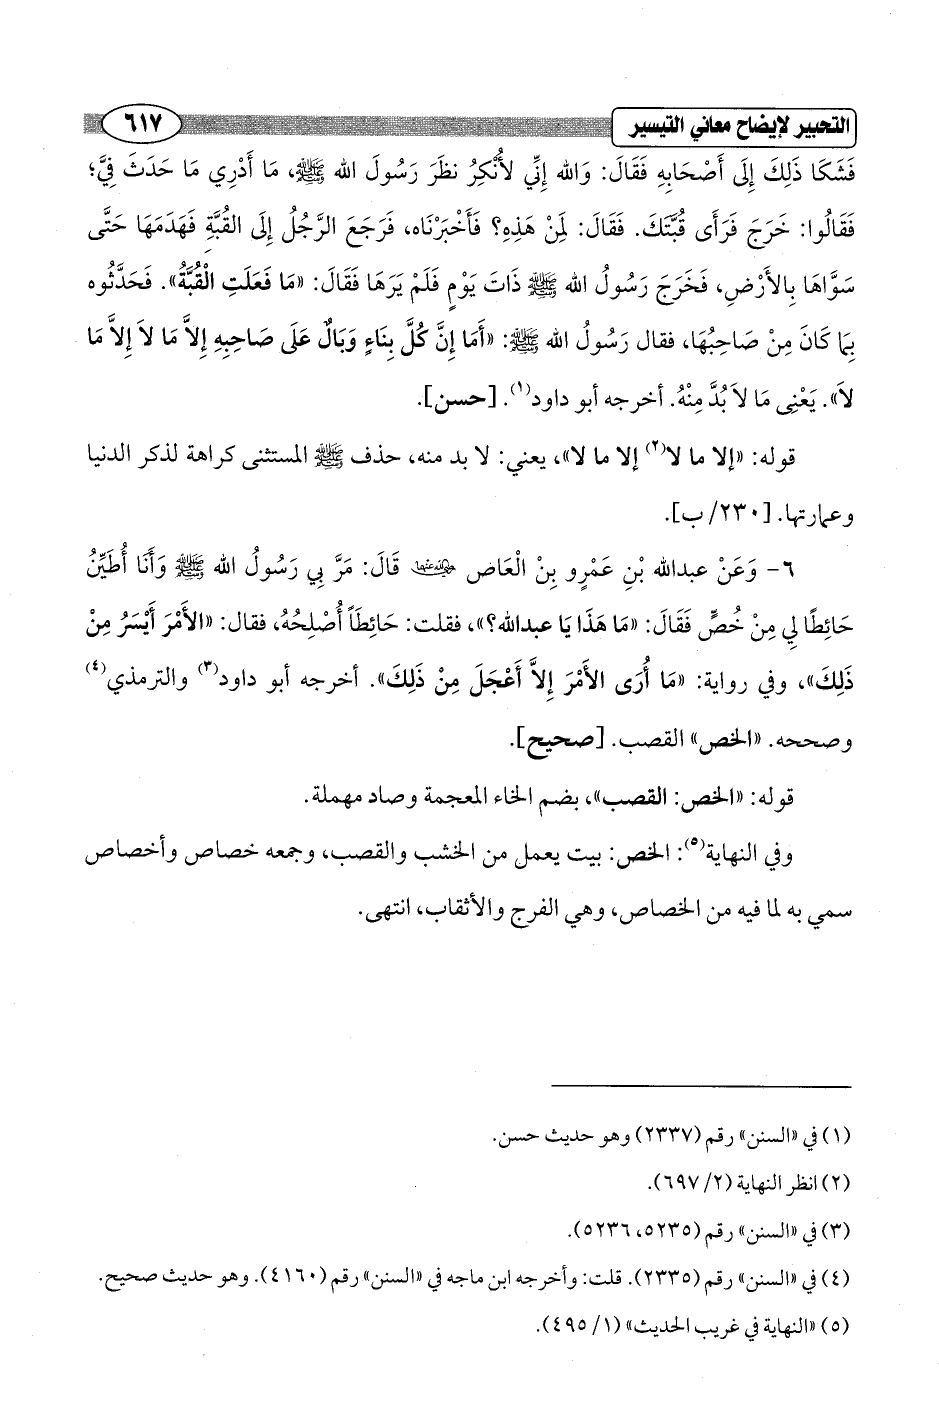 التحبير لإيضاح معاني التيسير ٦١٧
فَشَكَا ذَلِكَ إِلَى أَصْحَابِهِ فَقَالَ: وَالله إِنِّي لأُنْكِرُ نظَرَ رَسُولَ الله ﷺ، مَا أَدْرِي مَا حَدَثَ فِيَّ؛
فَقَالُوا: خَرَجَ فَرَأى قُبَّتَكَ. فَقَالَ: لِمَنْ هَذِهِ؟ فَأَخْبَرْنَاه، فَرَجَعَ الرَّجُلُ إِلَى القُبَّةِ فَهَدَمَهَا حَتَّى
سَوَّاهَا بِالأَرْضِ، فَخَرَجَ رَسُولُ الله ﷺ ذَاتَ يَوْمٍ فَلَمْ يَرَهَا فَقَالَ: «مَا فَعَلَتِ الْقُبَّةُ». فَحَدَّثُوه
بِمَا كَانَ مِنْ صَاحِبُهَا، فقال رَسُولُ الله ﷺ: «أَمَا إِنَّ كُلَّ بِنَاءٍ وَبَالٌ عَلَى صَاحِبِهِ إِلاَّ مَا لاَ إِلاَّ مَا
لاَ». يَعْنِى مَا لاَ بُدَّ مِنْهُ. أخرجه أبو داود(١). [حسن].
قوله: «إلا ما لا(٢) إلا ما لا»، يعني: لا بد منه، حذف ﷺ المستثنى كراهة لذكر الدنيا
وعمارتها. [٢٣٠/ ب].
٦- وَعَنْ عبدالله بْنِ عَمْرٍو بِنْ الْعَاص رضي الله عنهما قَالَ: مَرَّ بِي رَسُولُ الله ﷺ وَأَنَا أُطَيِّنُ
حَائِطًا لِي مِنْ خُصٍّ فَقَالَ: «مَا هَذَا يَا عبدالله؟»، فقلت: حَائِطَاً أُصْلِحُهُ، فقال: «الأَمْرَ أَيْسَرُ مِنْ
ذَلِكَ»، وفي رواية: «مَا أُرَى الأَمْرَ إِلاَّ أَعْجَلَ مِنْ ذَلِكَ». أخرجه أبو داود(٣) والترمذي(٤)
وصححه. «الخص» القصب. [صحيح].
قوله: «الخص: القصب»، بضم الخاء المعجمة وصاد مهملة.
وفي النهاية(٥): الخص: بيت يعمل من الخشب والقصب، وجمعه خصاص وأخصاص
سمي به لما فيه من الخصاص، وهي الفرج والأثقاب، انتهى.
(١) في «السنن» رقم (٢٣٣٧) وهو حديث حسن.
(٢) انظر النهاية (٢/ ٦٩٧).
(٣) في «السنن» رقم (٥٢٣٥، ٥٢٣٦).
(٤) في «السنن» رقم (٢٣٣٥). قلت: وأخرجه ابن ماجه في «السنن» رقم (٤١٦٠). وهو حديث صحيح.
(٥) «النهاية في غريب الحديث» (١/ ٤٩٥).